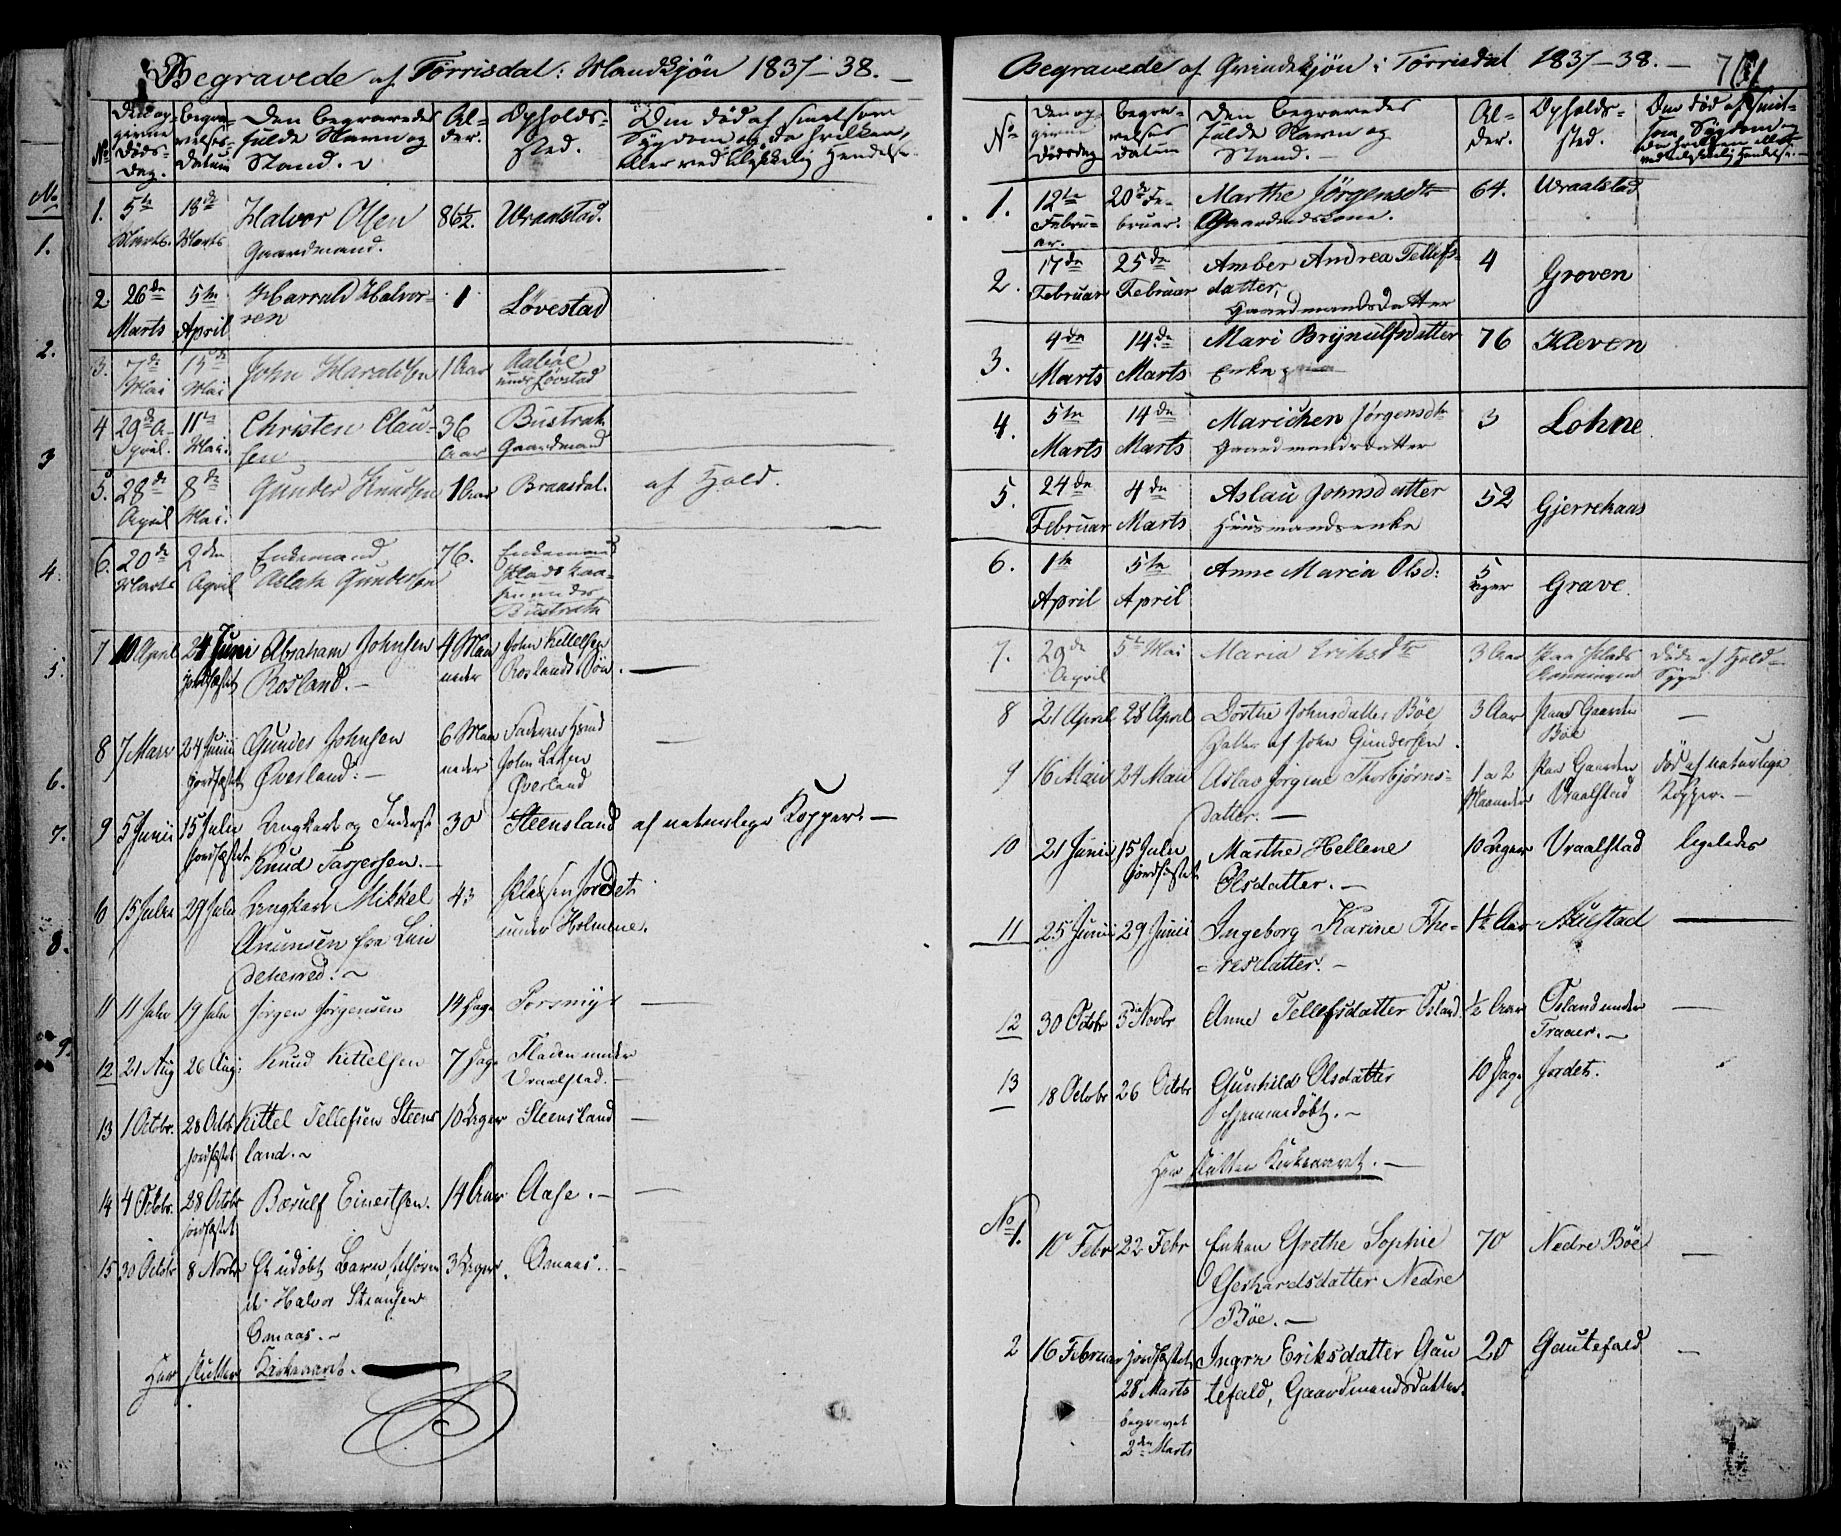 Begravede af Törrisdal: Mandkjön 1837-38.
No
Død og
girne
Døds-
Dag.
Begra-
velses-
Datum
Den begravedes
fulde Navn og
Stand.
Al-
der.
Opholds-
sted.
Om død af smitsom
Sygdom og da hvilken,
eller ved ulykkelig Hendelse.
1. 5te Marts. 18de Marts Halvor Olsen Gaardmand. 86½. Vraalstad.
2. 26de Marts 5te April Harrald Halvor-
sen 1 Lövestad
3. 7de Mai 15de Mai John Haraldsen 1 Aar
under Lövstad
4 29de A-
pril. 11te Mai. Christen Clau-
sen 36 Aar Bustrak
Gaardmand
5. 28de April 8de Mai. Gunder Knudsen 1 Aar Braasdal. af Hold.
6. 20de Marts 2den April
Aslak Gundersen 76.
under
Bustrak
7 10 April 24 Juni
jordfæstet Abraham Johnsen
Rosland.- 4 Maa
neder John Kittelsen
Roslands Søn. -
8 7 Marr 24 Junii
jordfæstet Gunder Johnsen
Øverland:- 6 Maa
neder
John Larsen
Øverland -
9 5 Junii 15 Julii
jordfæstet Ungkarl og Inderst
Knud Tarjersen.- 30 Steensland af naturlige Kopper.-
6 15 Julii 29 Julii Ungkarl Mikkel
Anunsen fra
43 Jordet
under Holmene.
11 11 Julii 19 Julii Jørgen Jørgensen 14 Dage Porsmyr -
12 21 Aug 26 Aug: Knud Kittelsen 7 Dage Fladen under
Vraalstad. -
13 1 Octobr. 28 Octob
jordfæstet Kittel Tellefsen Steens
land.- 10 Uger Steensland -
14 4 Octobr. 28 Octobr
jordfæstet Bærulf Einertsen. 14 Aar Aase. - -
15 30 Octobr 8 Novbr Et udöbt Barn, tilhören
de Halvor
Omaas.- 3 Uger. Omaas. -
Her slutter Kirkeaaret.-
Begravede af Qvindekjön i Törrisdal 1837-38.-
761
No
Den op-
girne
Dödsdag
Begra-
velses
datum
Den begravedes
fulde Navn og
Stand.-
Al-
der.
Opholds-
sted.
Om död af smit-
som Sygdom og
da hvilken eller
ved ulykkelig Hendelse.-
1. 12te Februar. 20de Fe-
bruar. Marthe Jörgensdtr
Gaardmdskone. 64. Vraalstad
2. 17de Februar 25de Februar Amber Andrea Tellefs-
datter,
Gaardmandsdatter 4 Groven
3. 4de Marts 14de Marts Mari Brynulfsdatter
Enke 76 Kleven
4. 5te Marts 14de Marts Marichen Jörgensdtr
Gaardmandsdatter 3 Lohne
5. 24de Februar 4de Marts Aslau Johnsdatter
Huusmandsenke 52 Gjerrehaas
6. 1te April 5te April Anne Maria Olsd: 5
Uger Grave.
7. 29de April 5te Mai Maria Eriksdtr 3 Aar paa Plads
Död af Hold-
Syge
8 21 April 28 April Dorthe Johnsdatter Böe
Datter af John Gundersen. 3 Aar paa Gaarden
Böe -
9 16 Maii 24 Maii Aslav Jörgine Thorbjörns-
datter. - 1 a 2
Maaneder paa Gaarden
Vraalstad död af naturlige
Kopper.-
10 21 Junii 15 Julii
jordfæstet Marthe Hellene
Olsdatter.- 10 Uger Vraalstad ligeledes
11 25 Junii 29 Junii Ingeborg Karine The-
-resdatter.- 1½ Aar Austad -
12 30 Octobr 3de Novbr Anne Tellefsdatter Osland. ½ Aar Osland under
Traaer.- -
13 18 Octobr 26 Octobr Gunhild Olsdatter
hjemmedöbt.- 10 Dage Jordet.
Her slutter Kirkeaaret.-
No 1. 10 Febr 22 Febr Enken Grethe Sophie
Gerhardsdatter Nedre
Böe.- 70 Nedre Böe -
2 16 Februar jordfæstet
28 Marts
begravet
2den Marts Ingrr Eriksdatter Gau
tefald, Gaardmandsdatter. 20 Gautefald -
No
1.
2.
3
4.
5.
6.
7.
8.
9.